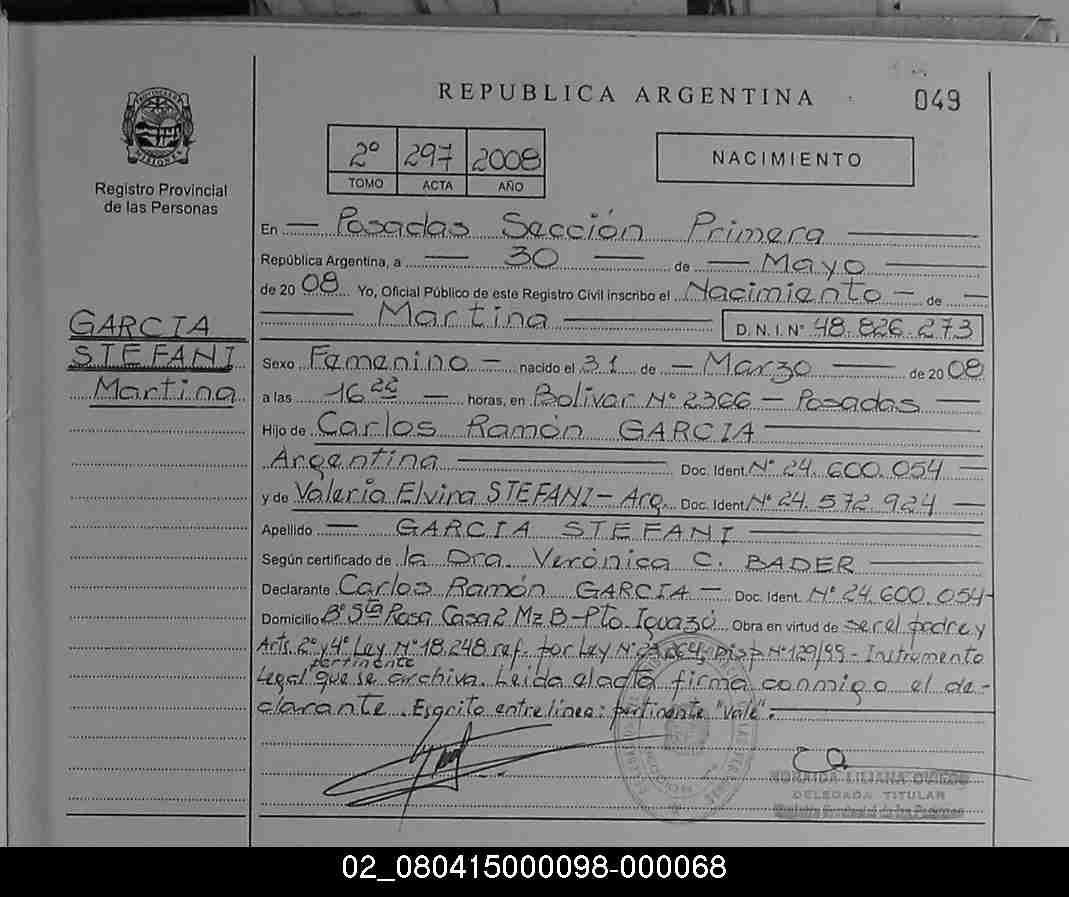 REPUBLICA ARGENTINA
049
PROVINCIA DE MISIONES
Registro Provincial
de las Personas
2º 297 2008
TOMO ACTA AÑO
NACIMIENTO
En — Posadas Sección Primera —
República Argentina, a — 30 — de — Mayo —
de 20 08 Yo, Oficial Público de este Registro Civil inscribo el Nacimiento — de —
— Martina — D.N.I. Nº 48.826.273
GARCIA
STEFANI
Martina
Sexo Femenino — nacido el 31 de — Marzo — de 20 08
a las 16 22 — horas, en Bolivar Nº 2366 — Posadas —
Hijo de Carlos Ramón GARCIA —
Argentina — Doc. Ident. Nº 24.600.054 —
y de Valeria Elvira STEFANI — Arg. Doc. Ident. Nº 24.572.924 —
Apellido — GARCIA STEFANI —
Según certificado de la Dra. Verónica C. BADER —
Declarante Carlos Ramón GARCIA — Doc. Ident. Nº 24.600.054-
Domicilio Bº Sta Rosa Casa 2 Mz B - Pto. Iguazú Obra en virtud de ser el padre y
Arts. 2º y 4º Ley Nº 18.248 ref. por Ley Nº 23.264, Disp. Nº 129/99 - Instrumento
pertinente
Legal que se archiva. Leida el acta firma conmigo el de-
clarante. Escrito entre linea: pertinente "vale". —
ZORAIDA LILIANA OVIEDO
DELEGADA TITULAR
Registro Provincial de las Personas
02_080415000098-000068